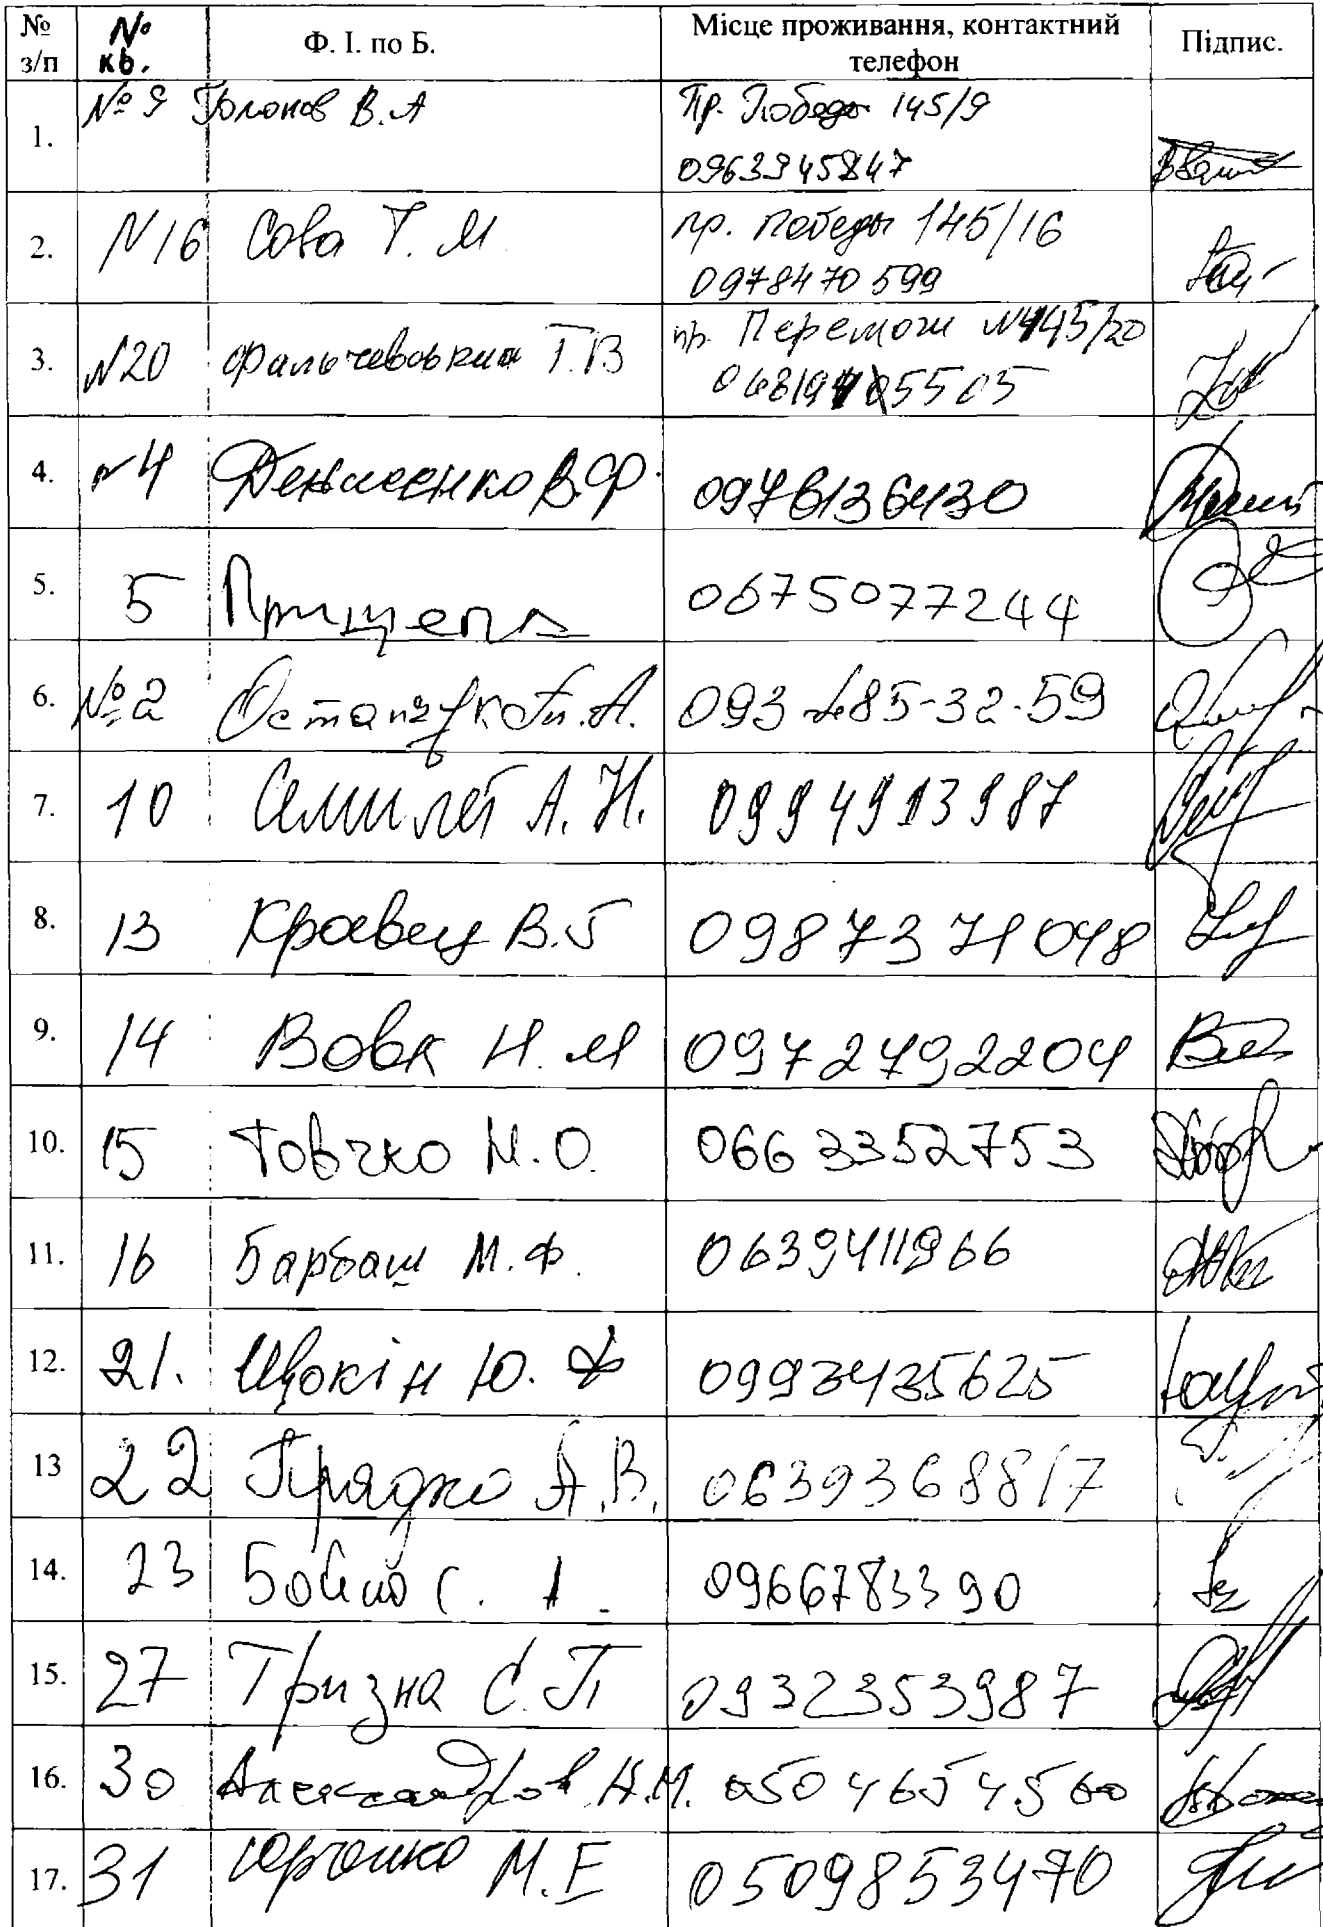 № з/п № кв. Ф. І. по Б. Місце проживання, контактний телефон Підпис.
1. № 9 Голонов В.А Пр. Победы 145/9
0963945847
2. N16 Сова Т. М пр. Победы 145/16
0978470599
3. N20 Фальчевський Г.В пр. Перемоги N145/20
4. N4 Денисенко В.Ф. 0976136430
5. 5 Прищепа 0675077244
6. №2 Остапчук Л.А. 093 485-32-59
7. 10 Семилет А. Н. 0994913987
8. 13 Кравец В.Б 0987371048
9. 14 Вовк Н. М 0972792204
10. 15 Товчко М.О. 0663352753
11. 16 Барбаш М.Ф. 0639411966
12. 21. Щокін Ю. Ф 0993435625
13 22 Прядко А.В. 0639368817
14. 23 Бойко С. 0966783390
15. 27 Тризна С.П 0932353987
16. 30 Александров Н.М. 0504654560
17. 31 Юрченко М.Е 0509853470